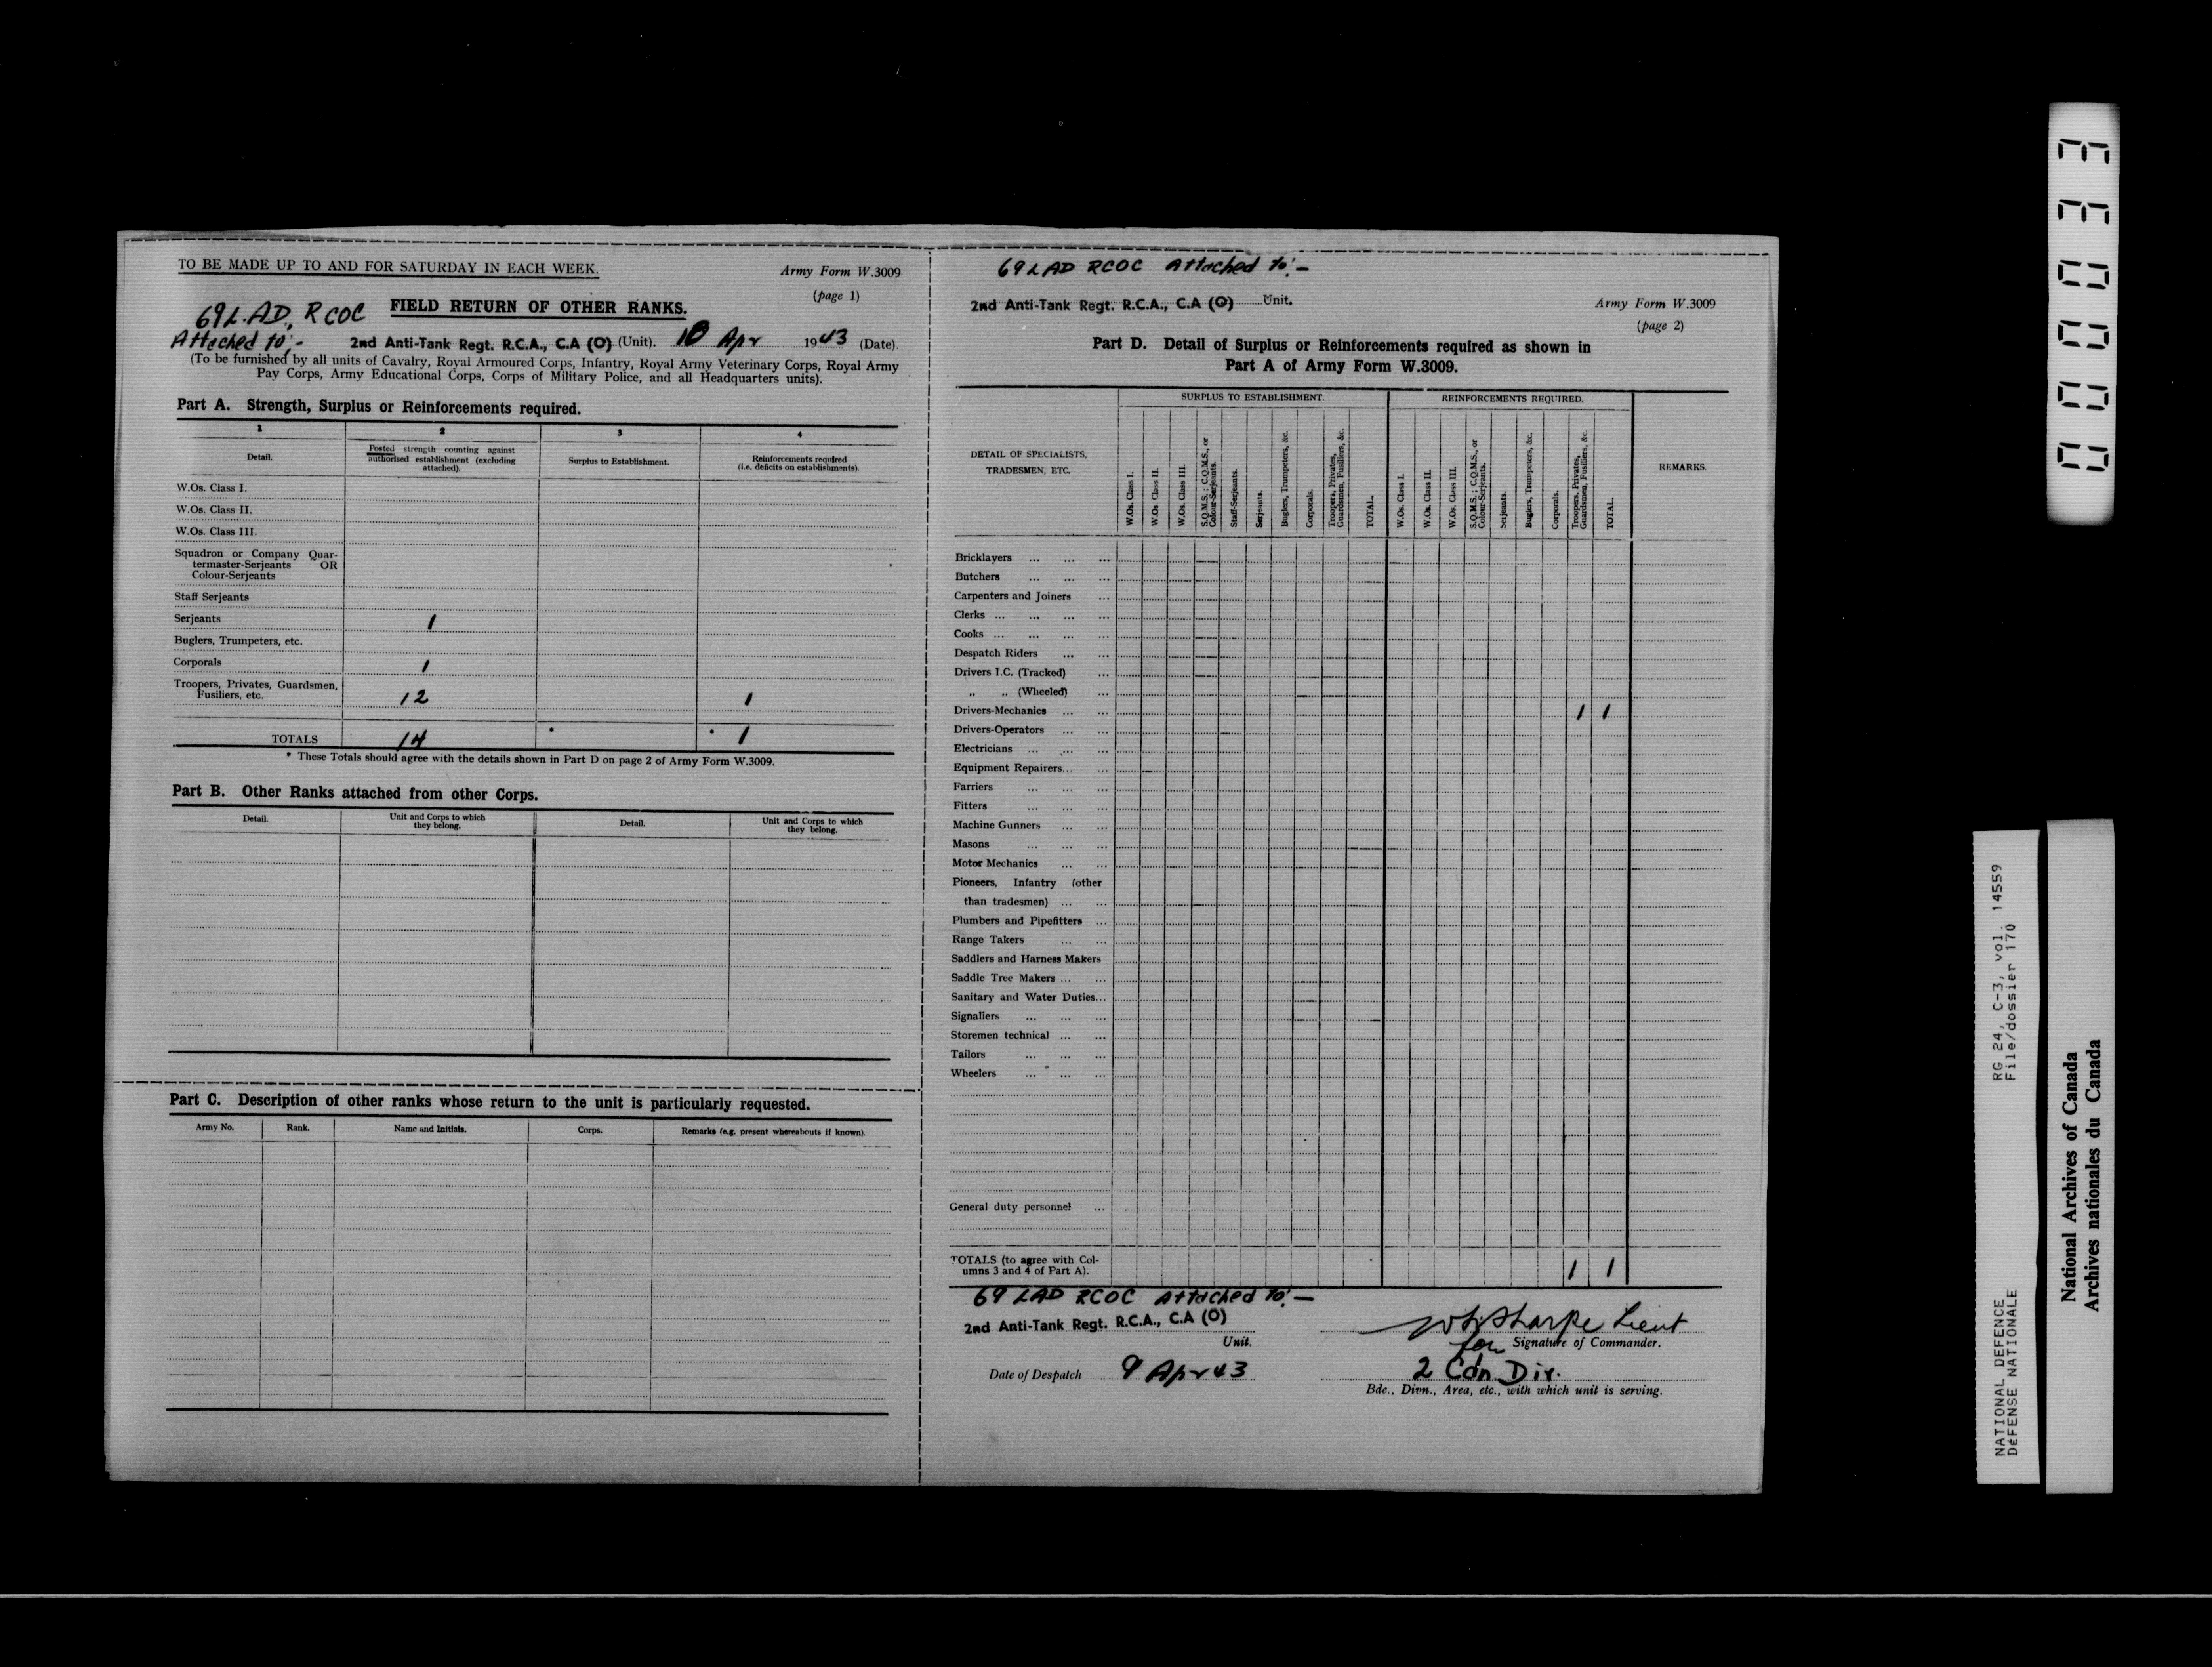 TO BE MADE UP TO AND FOR SATURDAY IN EACH WEEK.
Army Form W.3009
(page 1)
69 L.AD, RCOC
FIELD RETURN OF OTHER RANKS.
Attached to:-
2nd Anti-Tank Regt. R.C.A., C.A (O) (Unit). 10 Apr 1943 (Date).
(To be furnished by all units of Cavalry, Royal Armoured Corps, Infantry, Royal Army Veterinary Corps, Royal Army
Pay Corps, Army Educational Corps, Corps of Military Police, and all Headquarters units).
Part A. Strength, Surplus or Reinforcements required.
1 2 3 4
Detail.
Posted strength counting against
authorised establishment (excluding
attached).
Surplus to Establishment.
Reinforcements required
(i.e. deficits on establishments).
W.Os. Class I.
W.Os. Class II.
W.Os. Class III.
Squadron or Company Quar-
termaster-Serjeants OR
Colour-Serjeants
Staff Serjeants
Serjeants 1
Buglers, Trumpeters, etc.
Corporals 1
Troopers, Privates, Guardsmen,
Fusiliers, etc. 12 1
TOTALS 14 * * 1
* These Totals should agree with the details shown in Part D on page 2 of Army Form W.3009.
Part B. Other Ranks attached from other Corps.
Detail.
Unit and Corps to which
they belong.
Detail.
Unit and Corps to which
they belong.
Part C. Description of other ranks whose return to the unit is particularly requested.
Army No. Rank. Name and Initials. Corps. Remarks (e.g. present whereabouts if known).
69 LAD RCOC Attached to:-
2nd Anti-Tank Regt. R.C.A., C.A (O) Unit.
Army Form W.3009
(page 2)
Part D. Detail of Surplus or Reinforcements required as shown in
Part A of Army Form W.3009.
DETAIL OF SPECIALISTS,
TRADESMEN, ETC.
SURPLUS TO ESTABLISHMENT.
W.Os. Class I.
W.Os. Class II.
W.Os. Class III.
S.Q.M.S.; C.Q.M.S., or
Colour-Serjeants.
Staff-Serjeants.
Serjeants.
Buglers, Trumpeters, &c.
Corporals.
Troopers, Privates,
Guardsmen, Fusiliers, &c.
TOTAL.
REINFORCEMENTS REQUIRED.
W.Os. Class I.
W.Os. Class II.
W.Os. Class III.
S.Q.M.S.; C.Q.M.S., or
Colour-Serjeants.
Serjeants.
Buglers, Trumpeters, &c.
Corporals.
Troopers, Privates,
Guardsmen, Fusiliers, &c.
TOTAL.
REMARKS.
Bricklayers ... ... ...
Butchers ... ... ...
Carpenters and Joiners ...
Clerks ... ... ... ...
Cooks ... ... ... ...
Despatch Riders ... ...
Drivers I.C. (Tracked) ...
„ „ (Wheeled) ...
Drivers-Mechanics ... ... 1 1
Drivers-Operators ... ...
Electricians ... ... ...
Equipment Repairers... ...
Farriers ... ... ...
Fitters ... ... ...
Machine Gunners ... ...
Masons ... ... ...
Motor Mechanics ... ...
Pioneers, Infantry (other
than tradesmen) ... ...
Plumbers and Pipefitters ...
Range Takers ... ...
Saddlers and Harness Makers
Saddle Tree Makers ... ...
Sanitary and Water Duties...
Signallers ... ... ...
Storemen technical ... ...
Tailors ... ... ...
Wheelers ... ... ...
General duty personnel ...
TOTALS (to agree with Col-
umns 3 and 4 of Part A). 1 1
69 LAD RCOC Attached to:-
2nd Anti-Tank Regt. R.C.A., C.A (O)
Unit.
Sharpe Lieut
for Signature of Commander.
Date of Despatch 9 Apr 43
2 Cdn Div.
Bde., Divn., Area, etc., with which unit is serving.
RG 24, C-3, vol. 14559
File/dossier 170
NATIONAL DEFENCE
DÉFENSE NATIONALE
National Archives of Canada
Archives nationales du Canada